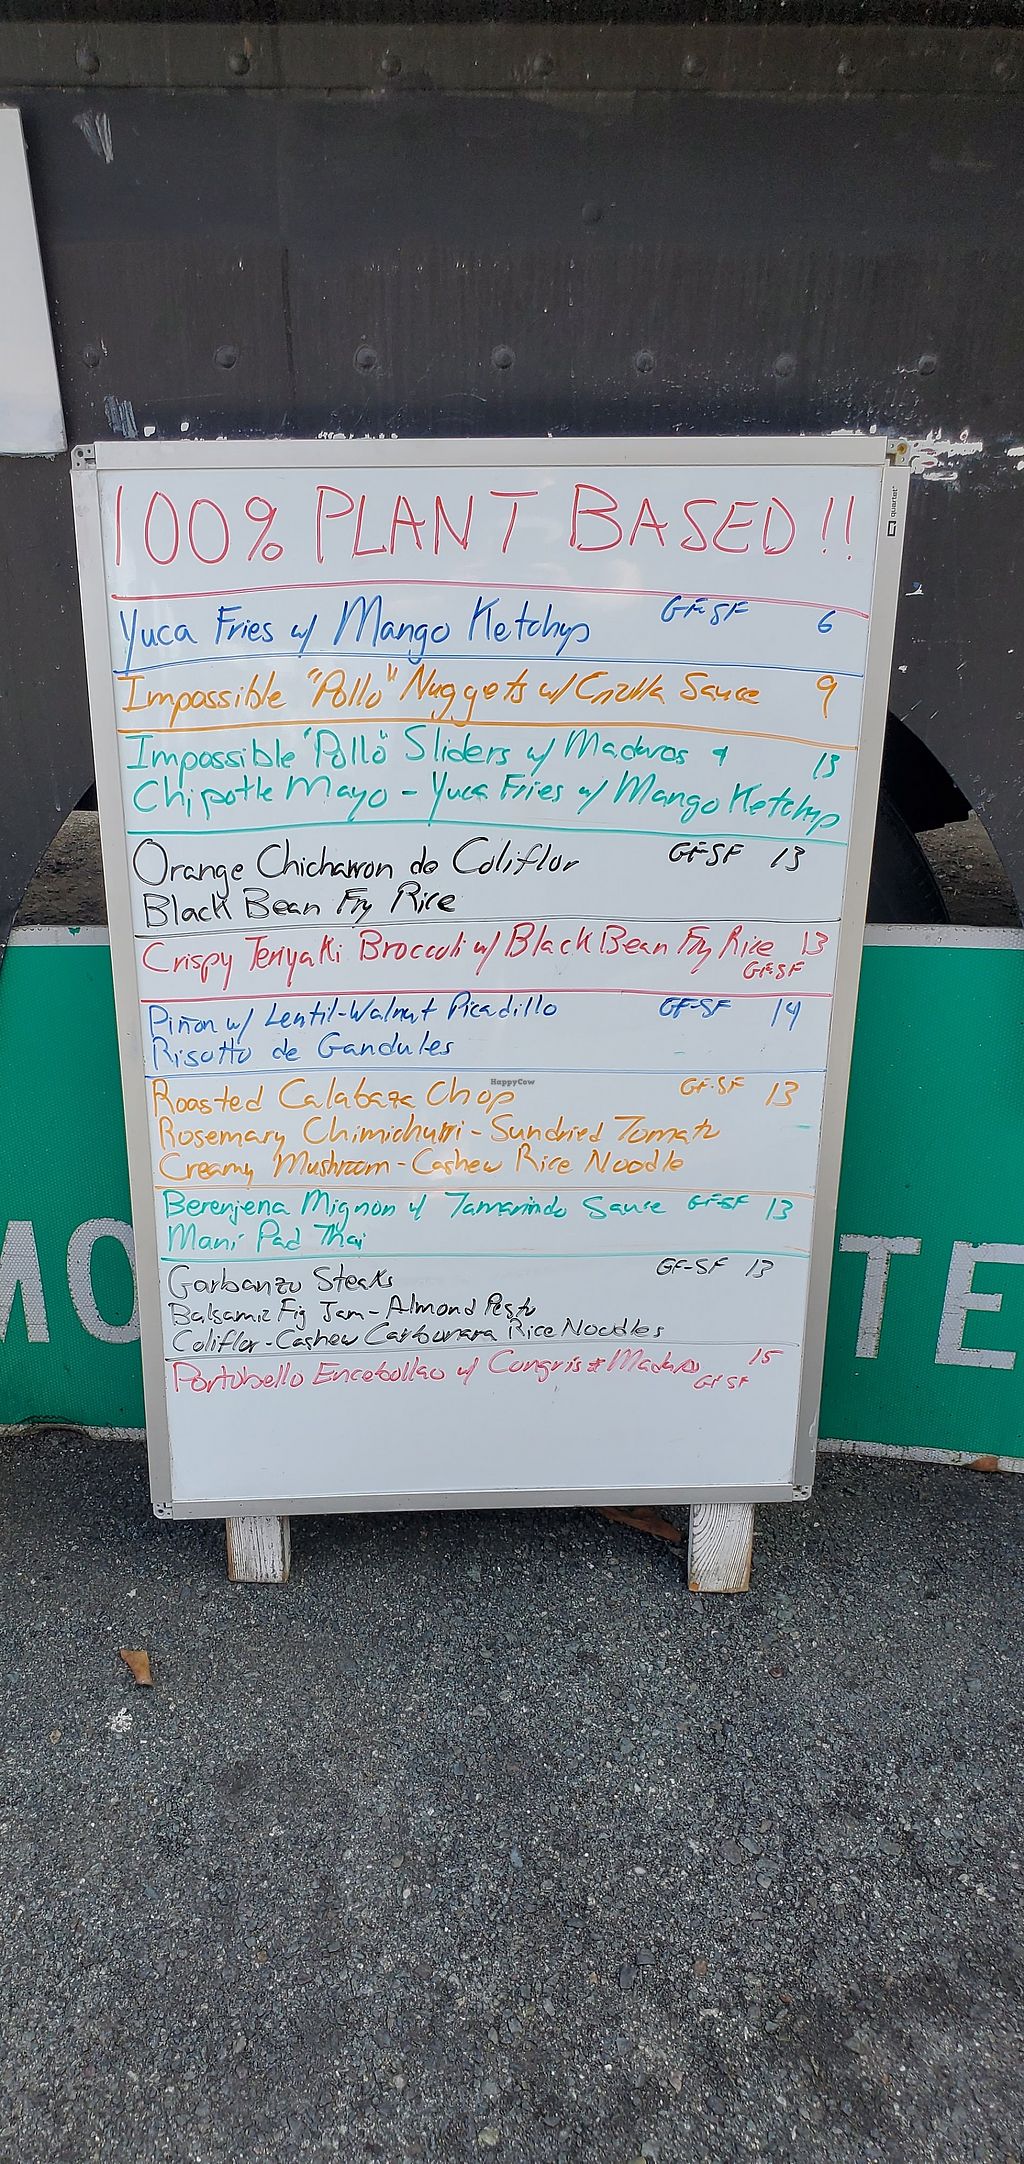 100% PLANT BASED!!
Yuca Fries w/ Mango Ketchup GF-SF 6
Impossible "Pollo" Nuggets w/ Criolla Sauce 9
Impossible "Pollo" Sliders w/ Maduros & 13
Chipotle Mayo - Yuca Fries w/ Mango Ketchup
Orange Chicharron de Coliflor GF-SF 13
Black Bean Fry Rice
Crispy Teriyaki Broccoli w/ Black Bean Fry Rice 13
GF-SF
Piñon w/ Lentil-Walnut Picadillo GF-SF 14
Risotto de Gandules
Roasted Calabaza Chop GF-SF 13
Rosemary Chimichurri - Sundried Tomato
Creamy Mushroom - Cashew Rice Noodle
Berenjena Mignon w/ Tamarindo Sauce GF-SF 13
Mani Pad Thai
Garbanzo Steaks GF-SF 13
Balsamic Fig Jam - Almond Pesto
Coliflor - Cashew Carbonara Rice Noodles
Portobello Encebollao w/ Congris & Maduros 15
GF SF
quartet
HappyCow
MO
TE